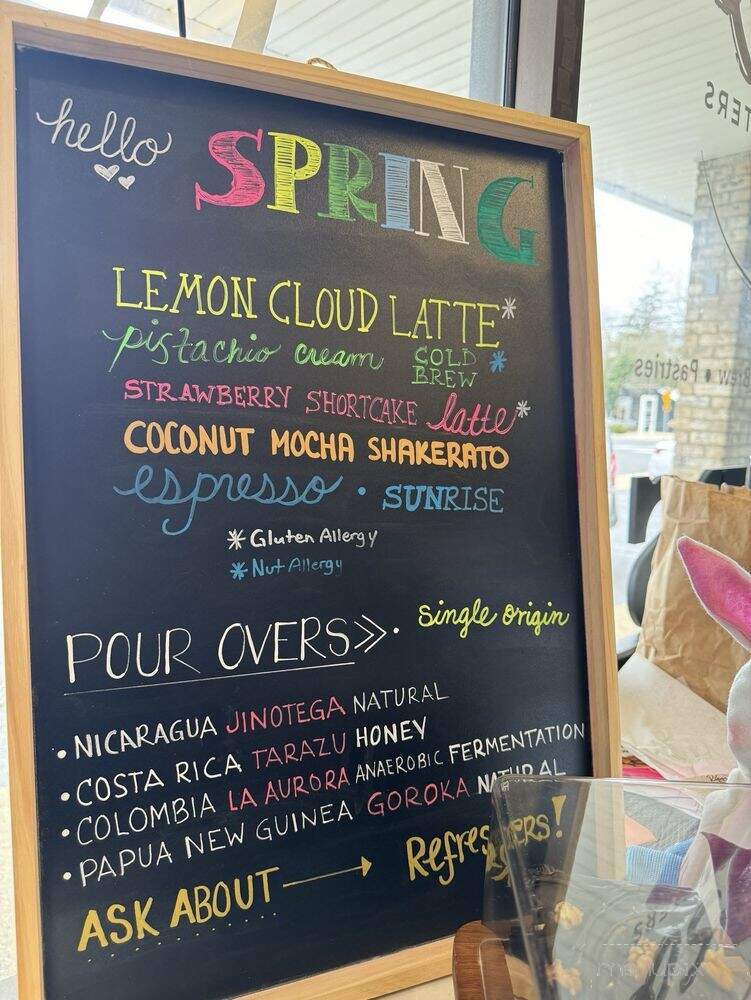 hello
SPRING
LEMON CLOUD LATTE*
pistachio cream COLD BREW *
STRAWBERRY SHORTCAKE latte*
COCONUT MOCHA SHAKERATO
espresso • SUNRISE
* Gluten Allergy
* Nut Allergy
POUR OVERS>>• single origin
• NICARAGUA JINOTEGA NATURAL
• COSTA RICA TARAZU HONEY
• COLOMBIA LA AURORA ANAEROBIC FERMENTATION
• PAPUA NEW GUINEA GOROKA NATURAL
ASK ABOUT → Refreshers!
TERS
Brew • Pastries
menupix